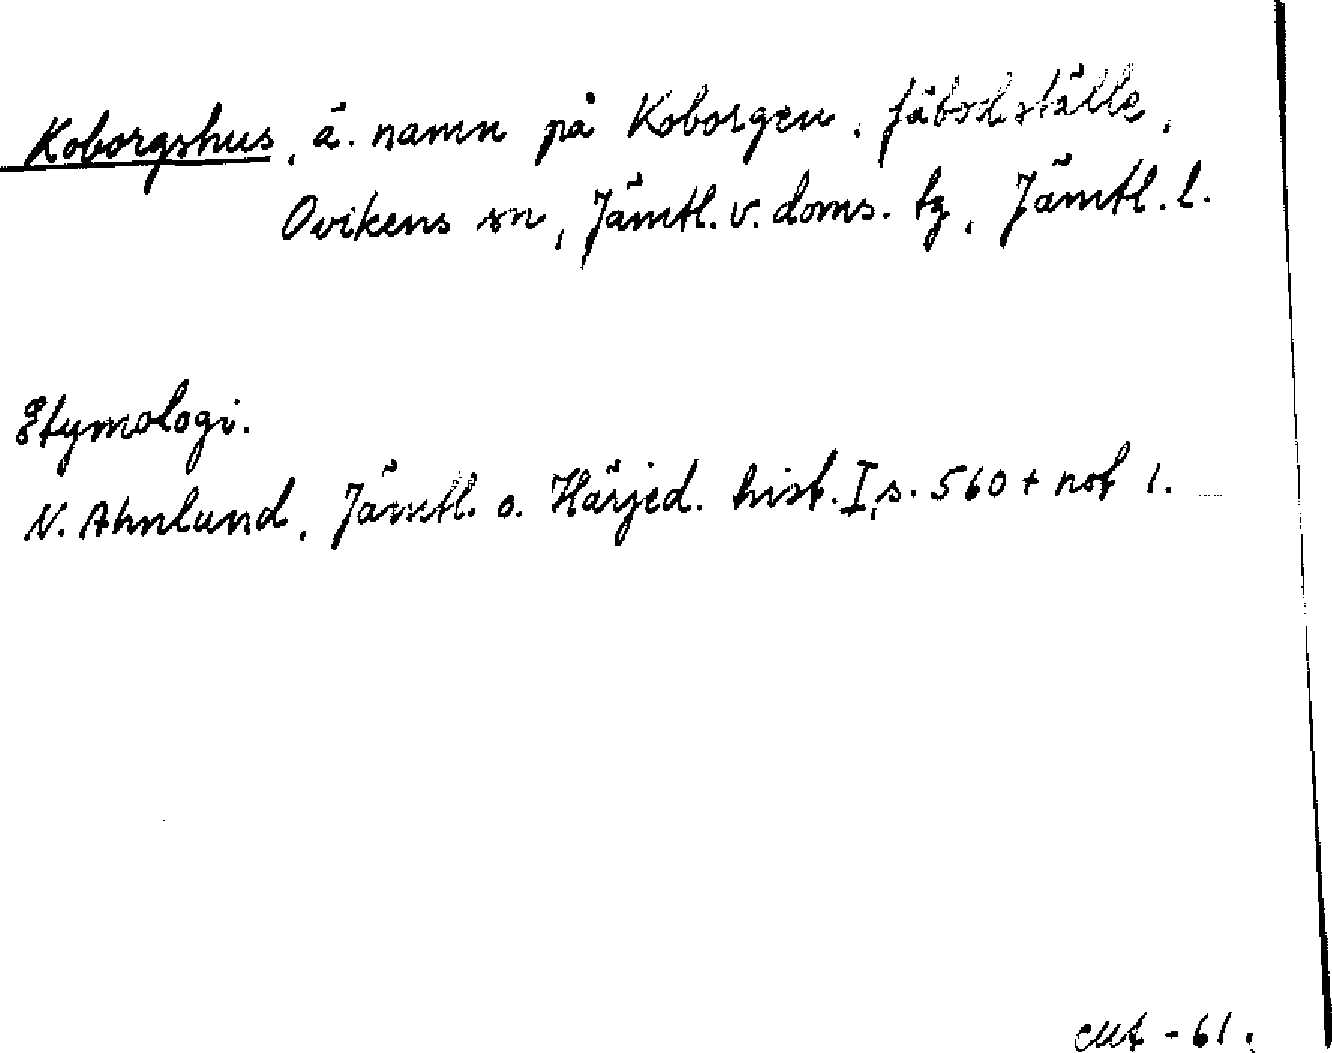 Koborgshus, ä. namn på Koborgen, fäbodställe,
Ovikens sn, Jämtl. v. doms. tg, Jämtl. l.
Etymologi.
N. Ahnlund, Jämtl. o. Härjed. hist. I, s. 560 + not 1.
- 61.